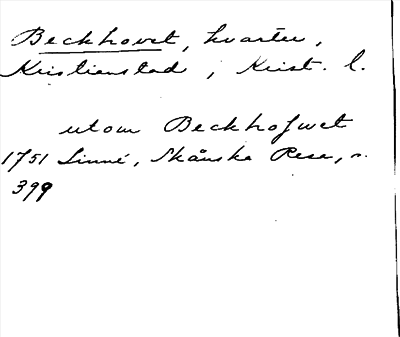 Beckhovet, kvarter,
Kristianstad, Krist. l.
utom Beckhofwet
1751 Linné, Skånska Resa, s.
399